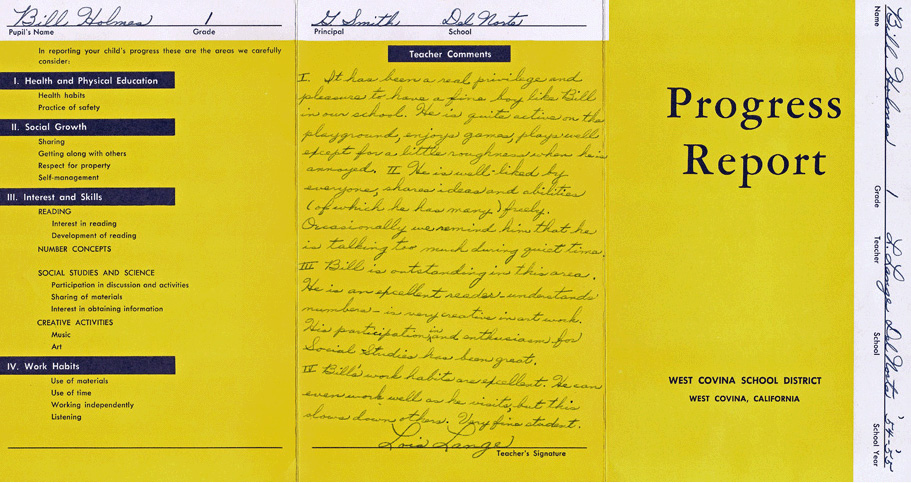 Bill Holmes 1
Pupil's Name Grade
In reporting your child's progress these are the areas we carefully
consider:
I. Health and Physical Education
Health habits
Practice of safety
II. Social Growth
Sharing
Getting along with others
Respect for property
Self-management
III. Interest and Skills
READING
Interest in reading
Development of reading
NUMBER CONCEPTS
SOCIAL STUDIES AND SCIENCE
Participation in discussion and activities
Sharing of materials
Interest in obtaining information
CREATIVE ACTIVITIES
Music
Art
IV. Work Habits
Use of materials
Use of time
Working independently
Listening
G Smith Del Norte
Principal School
Teacher Comments
I. It has been a real privilege and
pleasure to have a fine boy like Bill
in our school. He is quite active on the
playground, enjoys games, plays well
except for a little roughness when he is
annoyed. II He is well-liked by
everyone, shares ideas and abilities
(of which he has many) freely.
Occasionally we remind him that he
is talking too much during quiet time.
III Bill is outstanding in this area.
He is an excellent reader - understands
numbers - is very creative in art work.
His participation in and enthusiasm for
Social Studies has been great.
IV Bill's work habits are excellent. He can
even work well as he visits, but this
slows down others. Very fine student.
Lois Lange
Teacher's Signature
Progress
Report
WEST COVINA SCHOOL DISTRICT
WEST COVINA, CALIFORNIA
Bill Holmes 1 L. Lange Del Norte '54-'55
Name Grade Teacher School School Year